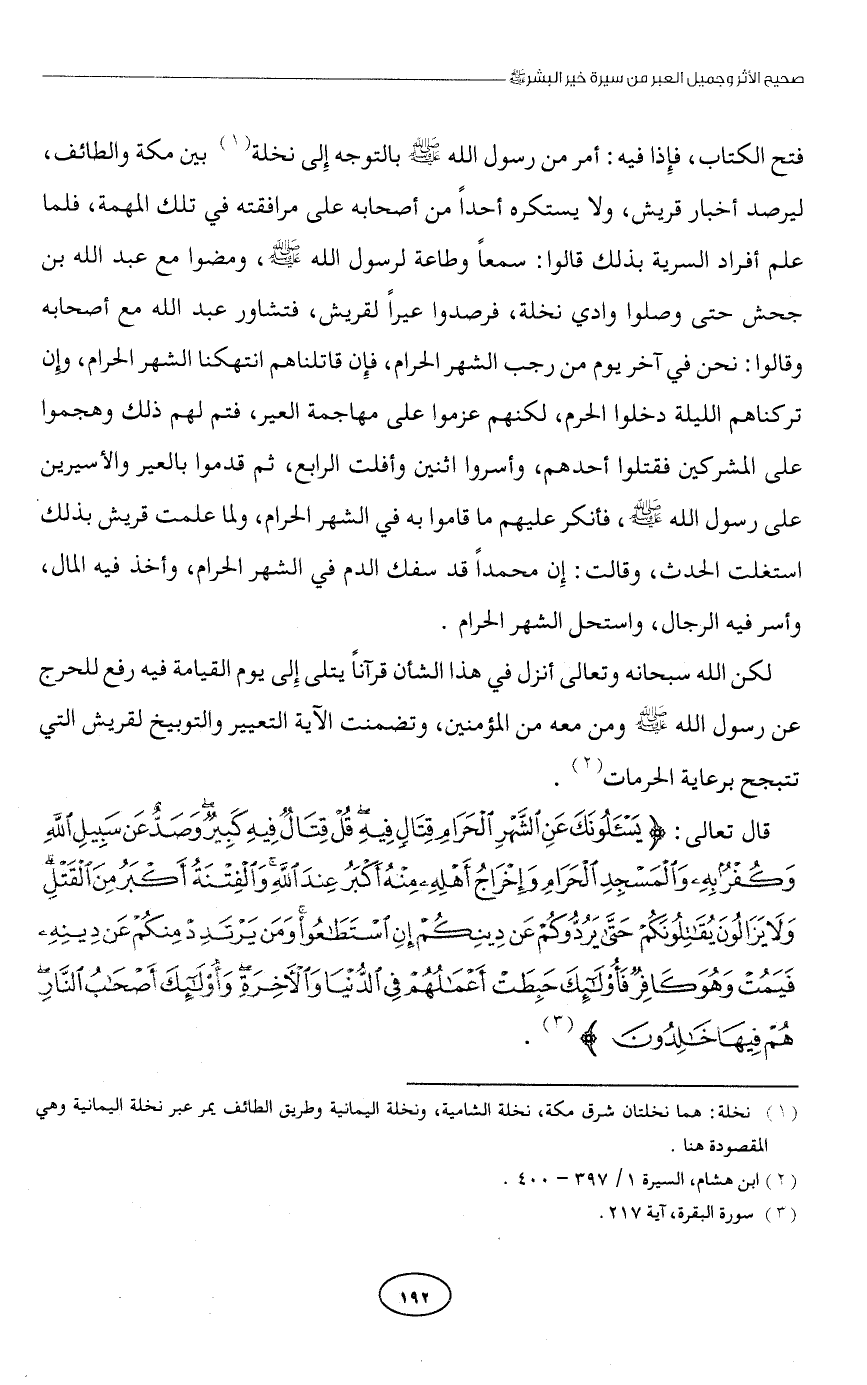 صحيح الأثر وجميل العبر من سيرة خير البشر ﷺ
فتح الكتاب، فإذا فيه: أمر من رسول الله ﷺ بالتوجه إلى نخلة(١) بين مكة والطائف،
ليرصد أخبار قريش، ولا يستكره أحداً من أصحابه على مرافقته في تلك المهمة، فلما
علم أفراد السرية بذلك قالوا: سمعاً وطاعة لرسول الله ﷺ، ومضوا مع عبد الله بن
جحش حتى وصلوا وادي نخلة، فرصدوا عيراً لقريش، فتشاور عبد الله مع أصحابه
وقالوا: نحن في آخر يوم من رجب الشهر الحرام، فإن قاتلناهم انتهكنا الشهر الحرام، وإن
تركناهم الليلة دخلوا الحرم، لكنهم عزموا على مهاجمة العير، فتم لهم ذلك وهجموا
على المشركين فقتلوا أحدهم، وأسروا اثنين وأفلت الرابع، ثم قدموا بالعير والأسيرين
على رسول الله ﷺ، فأنكر عليهم ما قاموا به في الشهر الحرام، ولما علمت قريش بذلك
استغلت الحدث، وقالت: إن محمداً قد سفك الدم في الشهر الحرام، وأخذ فيه المال،
وأسر فيه الرجال، واستحل الشهر الحرام .
لكن الله سبحانه وتعالى أنزل في هذا الشأن قرآناً يتلى إلى يوم القيامة فيه رفع للحرج
عن رسول الله ﷺ ومن معه من المؤمنين، وتضمنت الآية التعيير والتوبيخ لقريش التي
تتبجح برعاية الحرمات(٢) .
قال تعالى: ﴿ يَسْـَٔلُونَكَ عَنِ ٱلشَّهْرِ ٱلْحَرَامِ قِتَالٍ فِيهِ ۖ قُلْ قِتَالٌ فِيهِ كَبِيرٌ ۖ وَصَدٌّ عَن سَبِيلِ ٱللَّهِ
وَكُفْرٌۢ بِهِۦ وَٱلْمَسْجِدِ ٱلْحَرَامِ وَإِخْرَاجُ أَهْلِهِۦ مِنْهُ أَكْبَرُ عِندَ ٱللَّهِ ۚ وَٱلْفِتْنَةُ أَكْبَرُ مِنَ ٱلْقَتْلِ ۗ
وَلَا يَزَالُونَ يُقَـٰتِلُونَكُمْ حَتَّىٰ يَرُدُّوكُمْ عَن دِينِكُمْ إِنِ ٱسْتَطَـٰعُوا۟ ۚ وَمَن يَرْتَدِدْ مِنكُمْ عَن دِينِهِۦ
فَيَمُتْ وَهُوَ كَافِرٌ فَأُو۟لَـٰٓئِكَ حَبِطَتْ أَعْمَـٰلُهُمْ فِى ٱلدُّنْيَا وَٱلْـَٔاخِرَةِ ۖ وَأُو۟لَـٰٓئِكَ أَصْحَـٰبُ ٱلنَّارِ ۖ
هُمْ فِيهَا خَـٰلِدُونَ ﴾(٣) .
(١) نخلة: هما نخلتان شرق مكة، نخلة الشامية، ونخلة اليمانية وطريق الطائف يمر عبر نخلة اليمانية وهي
المقصودة هنا .
(٢) ابن هشام، السيرة ١/ ٣٩٧ – ٤٠٠ .
(٣) سورة البقرة، آية ٢١٧.
١٩٢